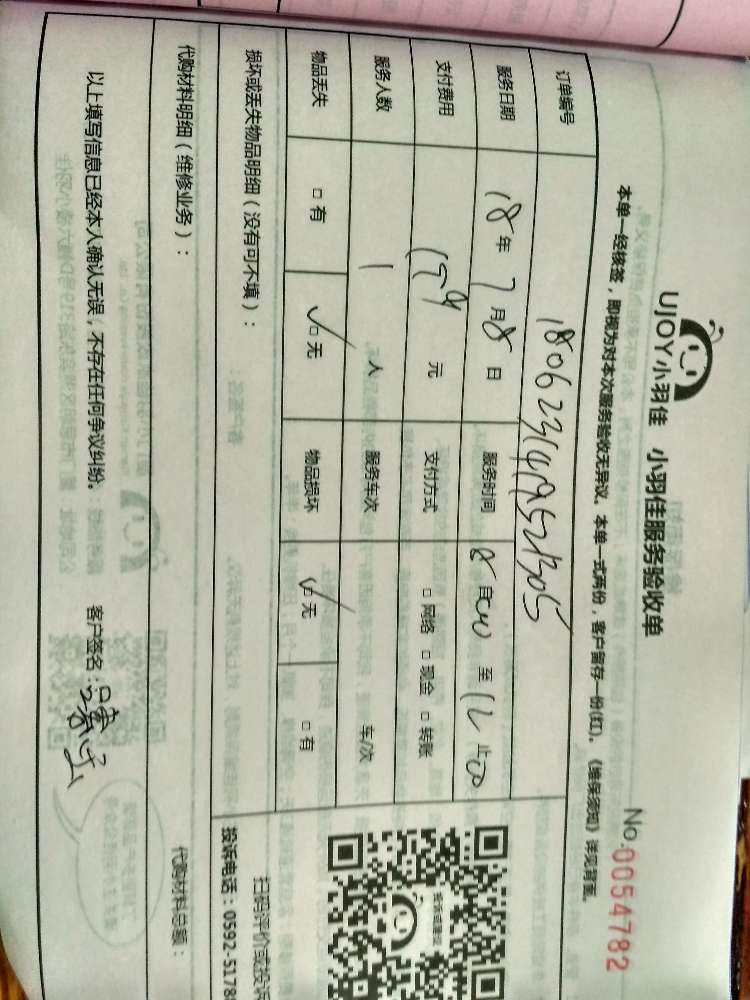 UJOY小羽佳 小羽佳服务验收单
No.0054782
本单一经核签，即视为对本次服务验收无异议。本单一式两份，客户留存一份(红)。《维保须知》详见背面。
订单编号
服务日期 18 年 7 月 8 日 服务时间 8 自 00 至 12 止 00
支付费用 159 元 支付方式 □ 网络 □ 现金 □ 转账
服务人数 1 人 服务车次 车/次
物品丢失 □ 有 ✓□ 无 物品损坏 ✓□ 无 □ 有
损坏或丢失物品明细（没有可不填）：
扫码评价或投诉
投诉电话：0592-5178
代购材料明细（维修业务）： 代购材料总额：
以上填写信息已经本人确认无误，不存在任何争议纠纷。 客户签名：